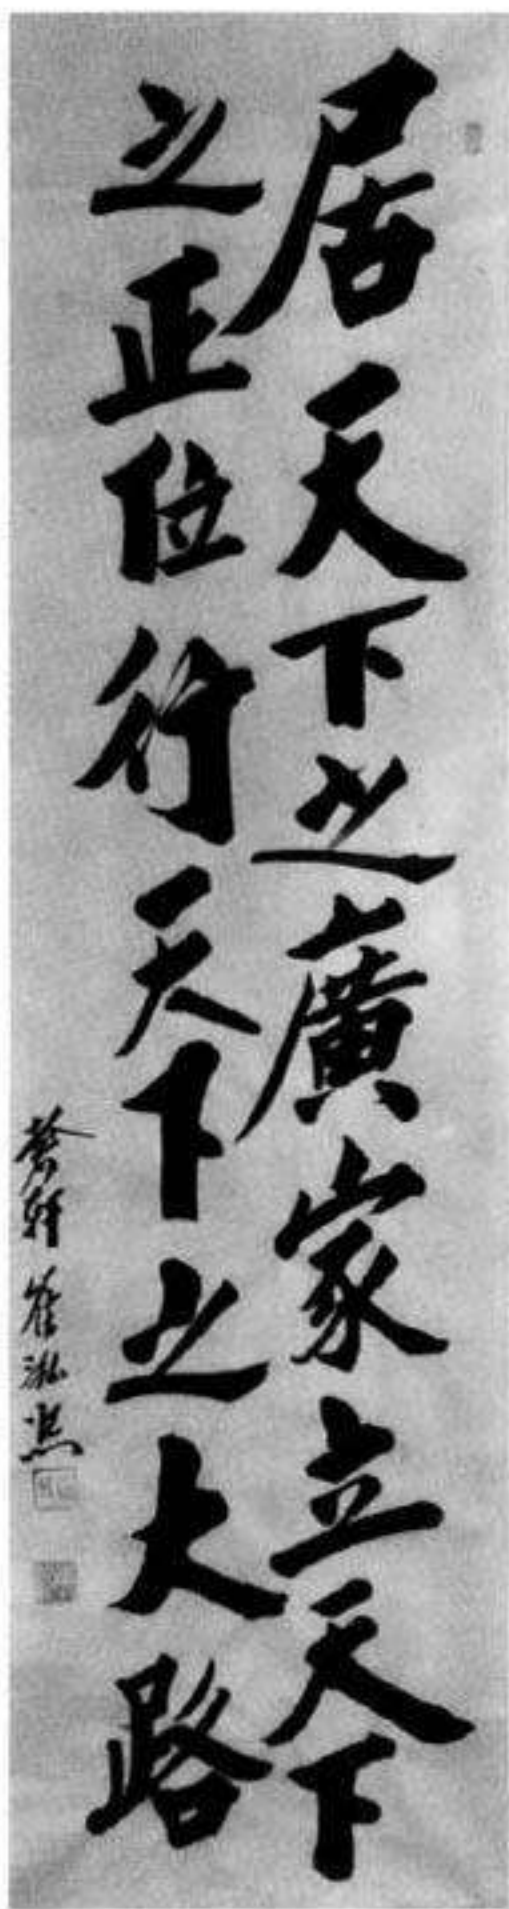 居天下之廣家立天下
之正位行天下之大路
軒崔